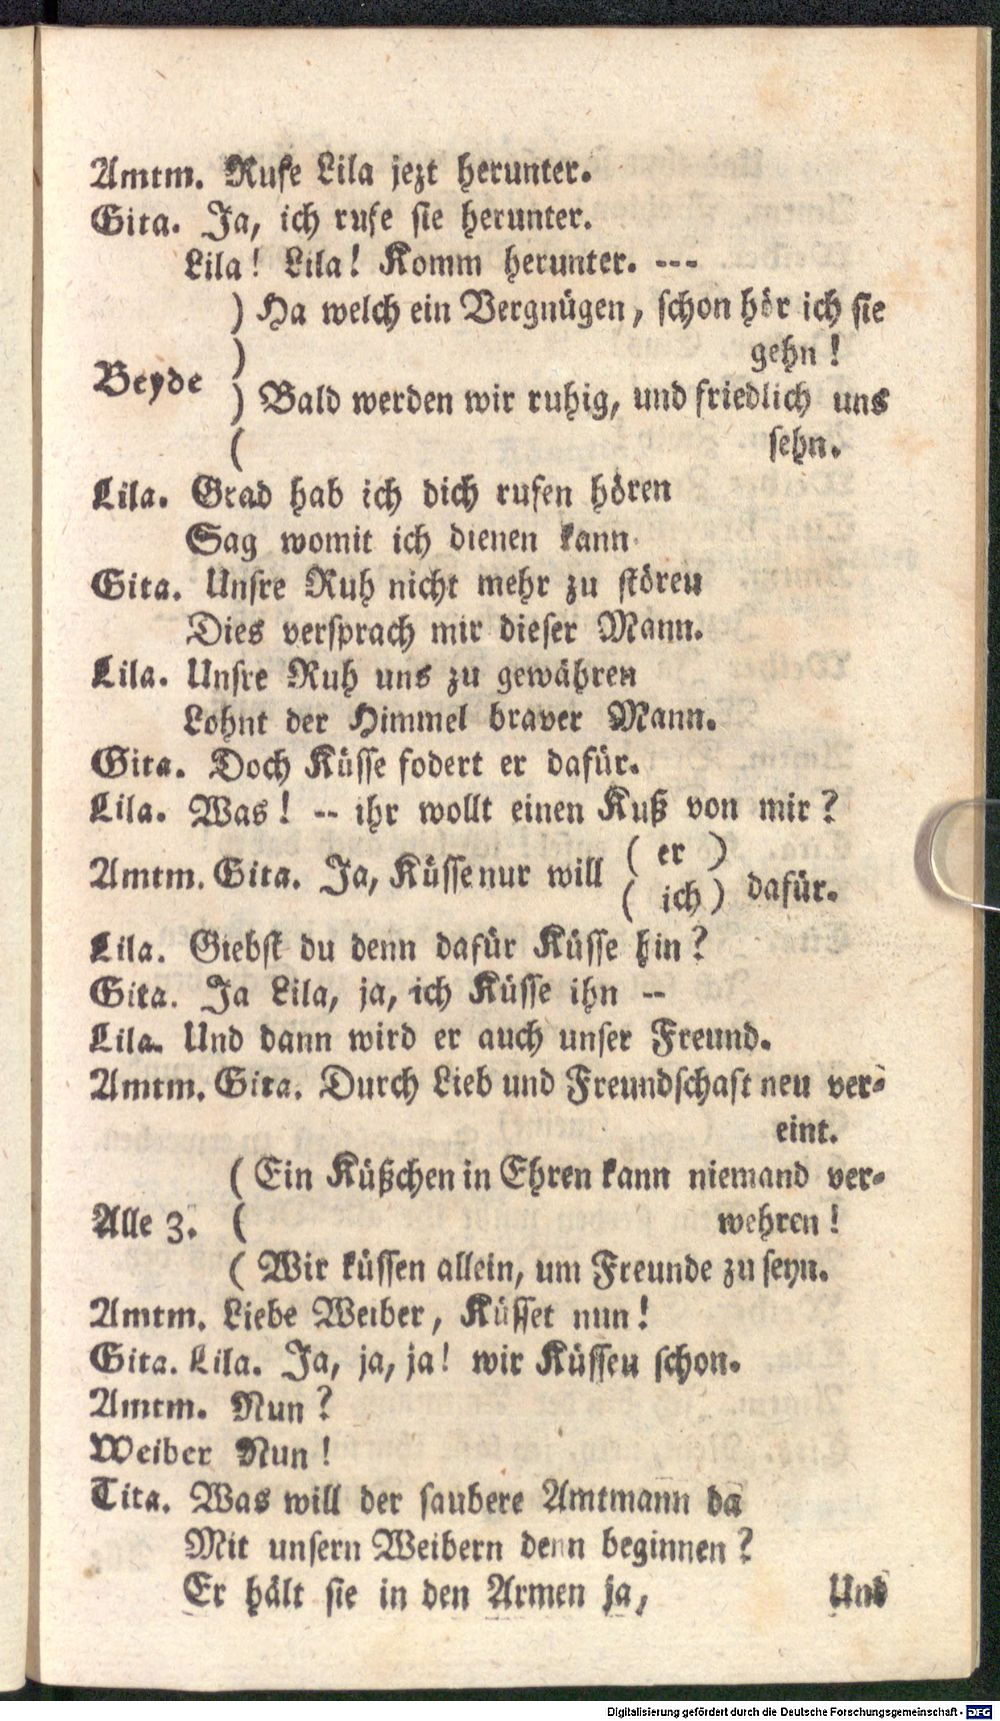 Amtm. Rufe Lila jezt herunter.
Gita. Ja, ich rufe sie herunter.
Lila! Lila! Komm herunter. ---
) Ha welch ein Vergnügen, schon hör ich sie
) gehn!
Beyde
) Bald werden wir ruhig, und friedlich uns
( sehn.
Lila. Grad hab ich dich rufen hören
Sag womit ich dienen kann
Gita. Unsre Ruh nicht mehr zu stören
Dies versprach mir dieser Mann.
Lila. Unsre Ruh uns zu gewähren
Lohnt der Himmel braver Mann.
Gita. Doch Küsse fodert er dafür.
Lila. Was! -- ihr wollt einen Kuß von mir?
Amtm. Gita. Ja, Küsse nur will ( er ) ( ich ) dafür.
Lila. Giebst du denn dafür Küsse hin?
Gita. Ja Lila, ja, ich Küsse ihn --
Lila. Und dann wird er auch unser Freund.
Amtm. Gita. Durch Lieb und Freundschaft neu ver-
eint.
( Ein Küßchen in Ehren kann niemand ver-
Alle 3. ( wehren!
( Wir küssen allein, um Freunde zu seyn.
Amtm. Liebe Weiber, Küsset nun!
Gita. Lila. Ja, ja, ja! wir Küssen schon.
Amtm. Nun?
Weiber Nun!
Tita. Was will der saubere Amtmann da
Mit unsern Weibern denn beginnen?
Er hält sie in den Armen ja,
Und
Digitalisierung gefördert durch die Deutsche Forschungsgemeinschaft - DFG